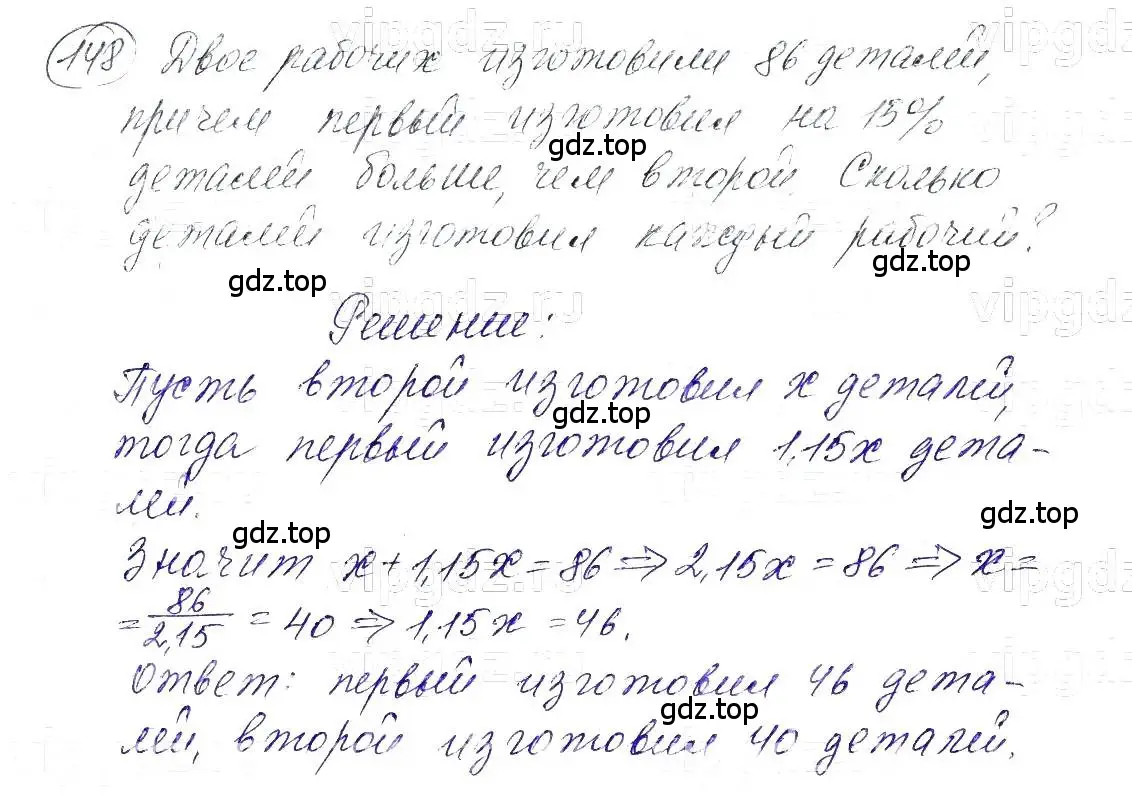 148 Двое рабочих изготовили 86 деталей,
причем первый изготовил на 15%
деталей больше, чем второй. Сколько
деталей изготовил каждый рабочий?
Решение:
Пусть второй изготовил x деталей,
тогда первый изготовил 1,15x дета-
лей.
Значит x + 1,15x = 86 ⇒ 2,15x = 86 ⇒ x =
= 86/2,15 = 40 ⇒ 1,15x = 46.
Ответ: первый изготовил 46 дета-
лей, второй изготовил 40 деталей.
gdz.top
gdz.top
gdz.top
gdz.top
gdz.top
gdz.top
gdz.top
vipgdz.ru
vipgdz
vipgdz.ru
vipgdz
vipgdz.ru
vipgdz